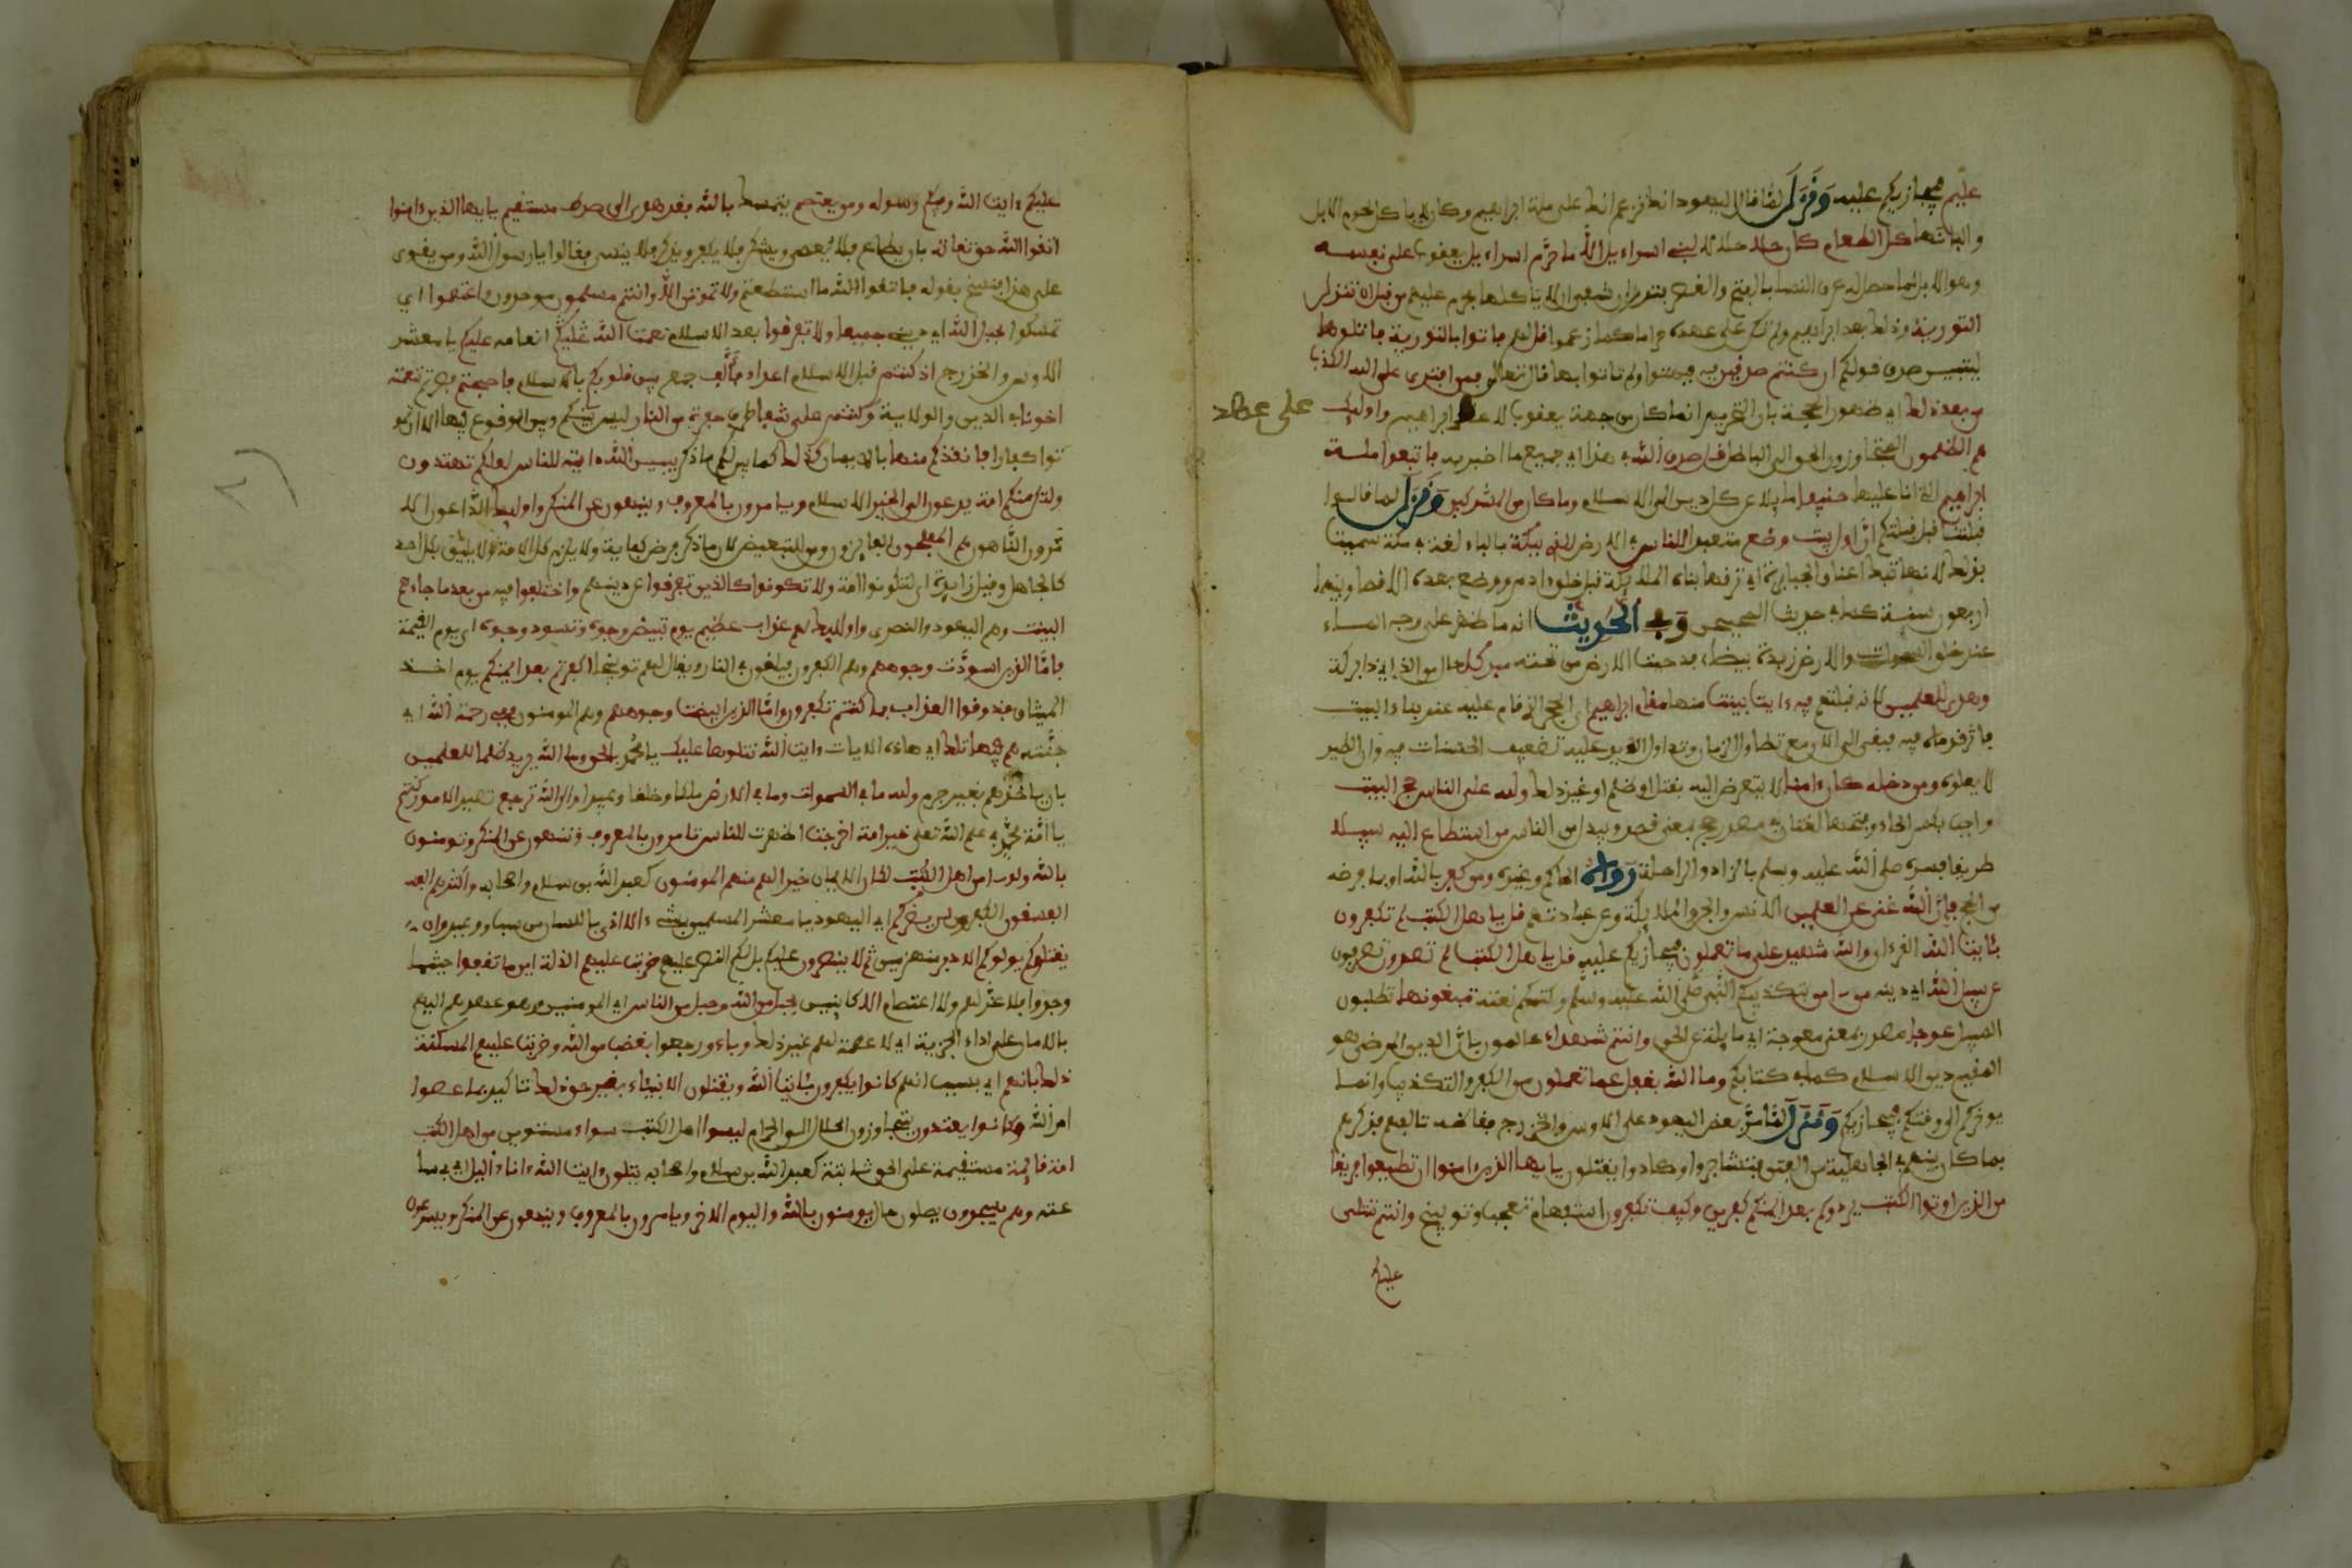 عليم فيجازيكم عليه ونزل لما قال اليهود انك تزعم انك على ملة ابراهيم وكان لا ياكل لحوم الابل
والبانها كل الطعام كان حلا حلالا لبني اسراءيل الا ما حرم اسراءيل يعقوب على نفسه
وهو الابل لما حصل له عرق النسا بالفتح والقصر فنذر ان شفي لا ياكلها فحرم عليهم من قبل ان تنزل
التورية وذلك بعد ابراهيم ولم تكن على عهده حراما كما زعموا قل لهم فاتوا بالتورية فاتلوها
ليتبين صدق قولكم ان كنتم صدقين فيه فبهتوا ولم ياتوا بها قال تعالى فمن افترى على الله الكذب
من بعد ذلك اي ظهور الحجة بان التحريم انما كان من جهة يعقوب لا على عهد ابراهيم واوليك
هم الظلمون المتجاوزون الحق الى الباطل قل صدق الله في هذا اي جميع ما اخبر به فاتبعوا ملة
ابراهيم التي انا عليها حنيفا مايلا عن كل دين الى الاسلام وما كان من المشركين ونزل لما قالوا
قبلتنا قبل قبلتكم ان اول بيت وضع متعبدا للناس في الارض للذي ببكة بالباء لغة في مكة سميت
بذلك لانها تبك اعناق الجبابرة اي تدقها بناه المليكة قبل خلق ادم ووضع بعده الاقصا وبينهما
اربعون سنة كما في حديث الصحيحين وفي الحديث انه ما ظهر على وجه الماء
عند خلق السموات والارض زبدة بيضاء فدحيت الارض من تحته مبركا حال من الذي اي ذا بركة
وهدى للعلمين لانه قبلتهم فيه ءايت بينت منها مقام ابراهيم اي الحجر الذي قام عليه عند بناء البيت
فاثر قدماه فيه فبقى الى الان مع تطاول الزمان وتداول الايدي عليه تضعيف الحسنات فيه وان الطير
لا يعلوه ومن دخله كان ءامنا لا يتعرض اليه بقتل او ظلم او غير ذلك ولله على الناس حج البيت
واجب بكسر الحاء وفتحها لغتان في مصدر حج بمعنى قصد ويبدل من الناس من استطاع اليه سبيلا
طريقا فسره صلى الله عليه وسلم بالزاد والراحلة رواه الحاكم وغيره ومن كفر بالله او بما فرضه
من الحج فان الله غني عن العلمين الانس والجن والمليكة وعن عبادتهم قل ياهل الكتب لم تكفرون
بئايت الله القرءان والله شهيد على ما تعملون فيجازيكم عليه قل ياهل الكتب لم تصدون تصرفون
عن سبيل الله اي دينه من ءامن بتكذيبكم النبي صلى الله عليه وسلم وكتمكم نعته تبغونها تطلبون
السبيل عوجا مصدر بمعنى معوجة اي مايلة عن الحق وانتم شهداء عالمون بان الدين المرضي هو
القيم دين الاسلام كما في كتابكم وما الله بغفل عما تعملون من الكفر والتكذيب وانما
يوخركم الى وقتكم فيجازيكم ونزل لما مر بعض اليهود على الاوس والخزرج فغاظه تالفهم فذكرهم
بما كان بينهم في الجاهلية من الفتن فتشاجروا وكادوا يقتتلون يايها الذين ءامنوا ان تطيعوا فريقا
من الذين اوتوا الكتب يردوكم بعد ايمنكم كفرين وكيف تكفرون استفهام تعجيب وتوبيخ وانتم تتلى
عليكم
على عهد
عليكم ءايت الله وفيكم رسوله ومن يعتصم يتمسك بالله فقد هدي الى صرط مستقيم يايها الذين ءامنوا
اتقوا الله حق تقاته بان يطاع فلا يعصى ويشكر فلا يكفر ويذكر فلا ينسى فقالوا يا رسول الله ومن يقوى
على هذا فنسخ بقوله فاتقوا الله ما استطعتم ولا تموتن الا وانتم مسلمون موحدون واعتصموا اي
تمسكوا بحبل الله اي دينه جميعا ولا تفرقوا بعد الاسلام نعمت الله عليكم انعامه عليكم يا معشر
الاوس والخزرج اذ كنتم قبل الاسلام اعداء فالف جمع بين قلوبكم بالاسلام فاصبحتم فصرتم بنعمته
اخونا في الدين والولاية وكنتم على شفا طرف حفرة من النار ليس بينكم وبين الوقوع فيها الا ان تمو
توا كفارا فانقذكم منها بالايمان كذلك كما بين لكم ما ذكر يبين الله ءايته للناس لعلكم تهتدون
ولتكن منكم امة يدعون الى الخير الاسلام ويامرون بالمعروف وينهون عن المنكر واوليك الداعون الا
مرون الناهون هم المفلحون الفايزون ومن للتبعيض لان ما ذكر فرض كفاية ولا يلزم كل الامة ولا يليق بكل احد
كالجاهل وقيل زايدة اي لتكونوا امة ولا تكونوا كالذين تفرقوا عن دينهم واختلفوا فيه من بعد ما جاءهم
البينت وهم اليهود والنصرى واوليك لهم عذاب عظيم يوم تبيض وجوه وتسود وجوه اي يوم القيمة
فاما الذين اسودت وجوههم وهم الكفرون فيلقون في النار ويقال لهم توبيخا اكفرتم بعد ايمنكم يوم اخذ
الميثاق فذوقوا العذاب بما كنتم تكفرون واما الذين ابيضت وجوههم وهم المومنون ففي رحمة الله اي
جنته هم فيها تلك اي هاذه الايات ءايت الله نتلوها عليك يا محمد بالحق وما الله يريد ظلما للعلمين
بان ياخذهم بغير جرم ولله ما في السموات وما في الارض ملكا وخلقا وعبيدا والى الله ترجع تصير الامور كنتم
يا امة محمد في علم الله تعلى خير امة اخرجت اظهرت للناس تامرون بالمعروف وتنهون عن المنكر وتومنون
بالله ولو ءامن اهل الكتب لكان الايمان خيرا لهم منهم المومنون كعبد الله بن سلام واصحابه واكثرهم الفـ
الفسقون الكفرون لن يضركم اي اليهود يا معشر المسلمين بشيء الا اذى باللسان من سب ووعيد وان
يقتلوكم يولوكم الادبر منهزمين ثم لا ينصرون عليكم بل لكم النصر عليهم ضربت عليهم الذلة اين ما ثقفوا حيثما
وجدوا فلا عز لهم ولا اعتصام الا كاينين بحبل من الله وحبل من الناس اي المومنين وهو عهدهم اليهم
بالامان على اداء الجزية اي لا عصمة لهم غير ذلك وباءو رجعوا بغضب من الله وضربت عليهم المسكنة
ذلك بانهم اي بسبب انهم كانوا يكفرون بئايت الله ويقتلون الانبياء بغير حق ذلك تاكيد بما عصوا
امر الله وكانوا يعتدون يتجاوزون الحلال الى الحرام ليسوا اهل الكتب سواء مستوين من اهل الكتب
امة قايمة مستقيمة على الحق ثابتة كعبد الله بن سلام واصحابه يتلون ءايت الله ءاناء اليل اي في سا
عته وهم يسجدون يصلون حال يومنون بالله واليوم الاخر ويامرون بالمعروف وينهون عن المنكر ويسرعون